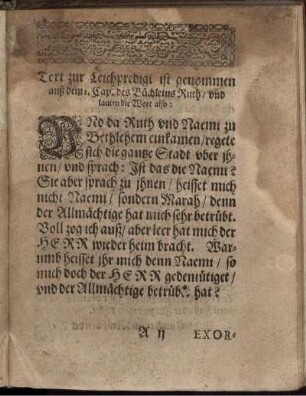 Text zur Leichpredigt ist genommen
auß dem 1. Cap. des Büchleins Ruth / vnd
lauten die Wort also:
VNd da Ruth vnd Naemi zu
Bethlehem einkamen / regete
sich die gantze Stadt vber jh-
nen / vnd sprach: Ist das die Naemi?
Sie aber sprach zu jhnen / heisset mich
nicht Naemi / sondern Marah / denn
der Allmächtige hat mich sehr betrübt.
Voll zog ich auß / aber leer hat mich der
HERR wieder heim bracht. War-
umb heisset jhr mich denn Naemi / so
mich doch der HERR gedemütiget /
vnd der Allmächtige betrübt hat?
A ij EXOR-